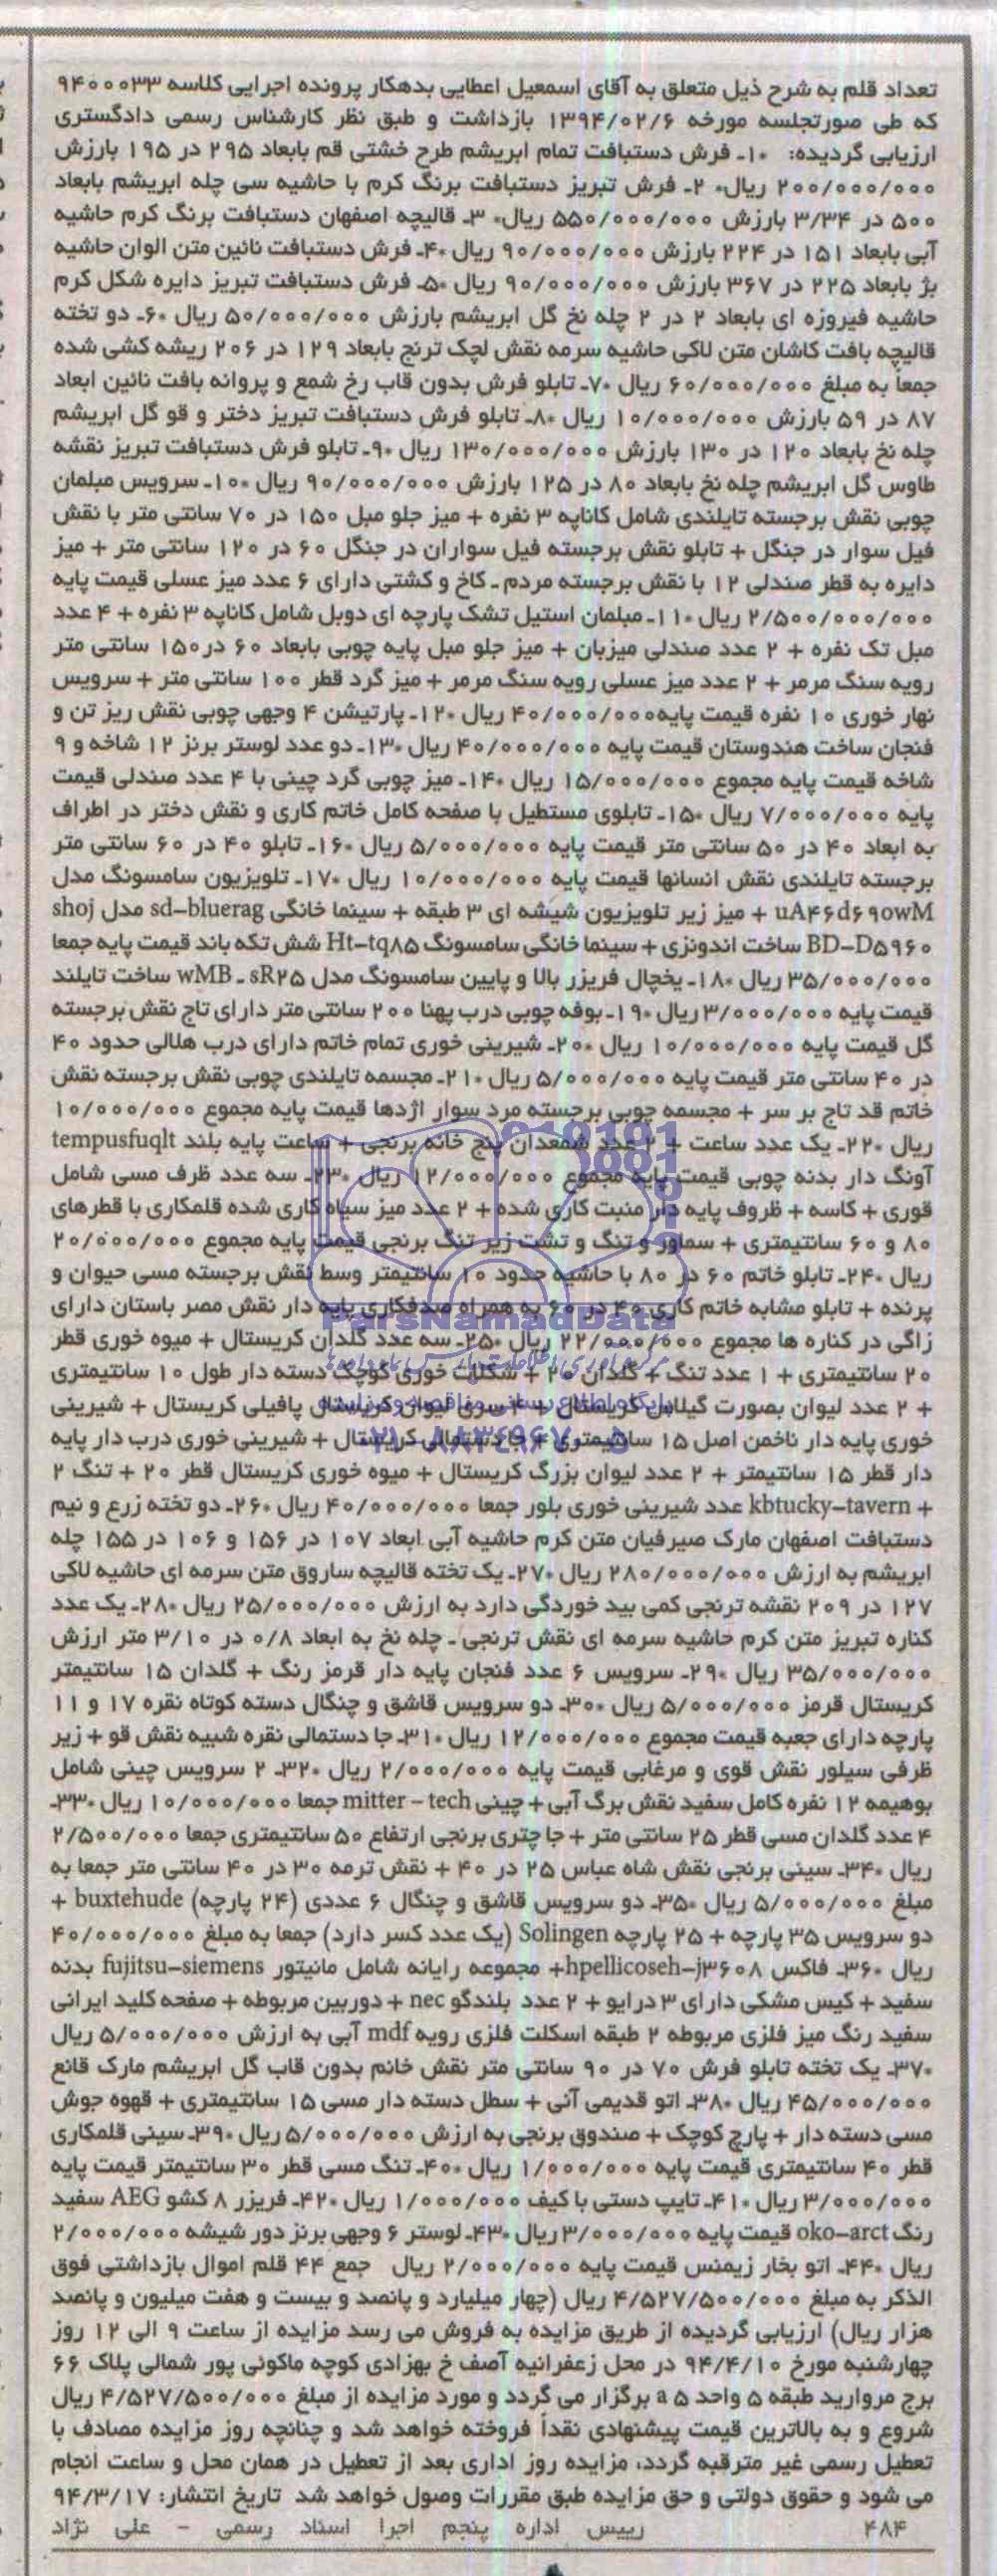 تعداد قلم به شرح ذیل متعلق به آقای اسمعیل اعطایی بدهکار پرونده اجرایی کلاسه ۹۴۰۰۰۳۳
که طی صورتجلسه مورخه ۱۳۹۴/۰۲/۶ بازداشت و طبق نظر کارشناس رسمی دادگستری
ارزیابی گردیده: ۱۰ـ فرش دستبافت تمام ابریشم طرح خشتی قم بابعاد ۲۹۵ در ۱۹۵ بارزش
۲۰۰/۰۰۰/۰۰۰ ریال۰ ۲ـ فرش تبریز دستبافت برنگ کرم با حاشیه سی چله ابریشم بابعاد
۵۰۰ در ۳/۳۴ بارزش ۵۵۰/۰۰۰/۰۰۰ ریال۰ ۳ـ قالیچه اصفهان دستبافت برنگ کرم حاشیه
آبی بابعاد ۱۵۱ در ۲۲۴ بارزش ۹۰/۰۰۰/۰۰۰ ریال ۴۰ـ فرش دستبافت نائین متن الوان حاشیه
بژ بابعاد ۲۲۵ در ۳۶۷ بارزش ۹۰/۰۰۰/۰۰۰ ریال ۵۰ـ فرش دستبافت تبریز دایره شکل کرم
حاشیه فیروزه ای بابعاد ۲ در ۲ چله نخ گل ابریشم بارزش ۵۰/۰۰۰/۰۰۰ ریال ۶۰ـ دو تخته
قالیچه بافت کاشان متن لاکی حاشیه سرمه نقش لچک ترنج بابعاد ۱۲۹ در ۲۰۶ ریشه کشی شده
جمعاً به مبلغ ۶۰/۰۰۰/۰۰۰ ریال ۷۰ـ تابلو فرش بدون قاب رخ شمع و پروانه بافت نائین ابعاد
۸۷ در ۵۹ بارزش ۱۰/۰۰۰/۰۰۰ ریال ۸۰ـ تابلو فرش دستبافت تبریز دختر و قو گل ابریشم
چله نخ بابعاد ۱۲۰ در ۱۳۰ بارزش ۱۳۰/۰۰۰/۰۰۰ ریال ۹۰ـ تابلو فرش دستبافت تبریز نقشه
طاوس گل ابریشم چله نخ بابعاد ۸۰ در ۱۲۵ بارزش ۹۰/۰۰۰/۰۰۰ ریال ۱۰۰ـ سرویس مبلمان
چوبی نقش برجسته تایلندی شامل کاناپه ۳ نفره + میز جلو مبل ۱۵۰ در ۷۰ سانتی متر با نقش
فیل سوار در جنگل + تابلو نقش برجسته فیل سواران در جنگل ۶۰ در ۱۲۰ سانتی متر + میز
دایره به قطر صندلی ۱۲ با نقش برجسته مردم ـ کاخ و کشتی دارای ۶ عدد میز عسلی قیمت پایه
۲/۵۰۰/۰۰۰/۰۰۰ ریال ۱۱۰ـ مبلمان استیل تشک پارچه ای دوبل شامل کاناپه ۳ نفره + ۴ عدد
مبل تک نفره + ۲ عدد صندلی میزبان + میز جلو مبل پایه چوبی بابعاد ۶۰ در۱۵۰ سانتی متر
رویه سنگ مرمر + ۲ عدد میز عسلی رویه سنگ مرمر + میز گرد قطر ۱۰۰ سانتی متر + سرویس
نهار خوری ۱۰ نفره قیمت پایه۴۰/۰۰۰/۰۰۰ ریال ۱۲۰ـ پارتیشن ۴ وجهی چوبی نقش ریز تن و
فنجان ساخت هندوستان قیمت پایه ۴۰/۰۰۰/۰۰۰ ریال ۱۳۰ـ دو عدد لوستر برنز ۱۲ شاخه و ۹
شاخه قیمت پایه مجموع ۱۵/۰۰۰/۰۰۰ ریال ۱۴۰ـ میز چوبی گرد چینی با ۴ عدد صندلی قیمت
پایه ۷/۰۰۰/۰۰۰ ریال ۱۵۰ـ تابلوی مستطیل با صفحه کامل خاتم کاری و نقش دختر در اطراف
به ابعاد ۴۰ در ۵۰ سانتی متر قیمت پایه ۵/۰۰۰/۰۰۰ ریال ۱۶۰ـ تابلو ۴۰ در ۶۰ سانتی متر
برجسته تایلندی نقش انسانها قیمت پایه ۱۰/۰۰۰/۰۰۰ ریال ۱۷۰ـ تلویزیون سامسونگ مدل
uA۴۶d۶۹۰wM + میز زیر تلویزیون شیشه ای ۳ طبقه + سینما خانگی sd-bluerag مدل shoj
BD-D۵۹۶۰ ساخت اندونزی + سینما خانگی سامسونگ Ht-tq۸۵ شش تکه باند قیمت پایه جمعا
۳۵/۰۰۰/۰۰۰ ریال ۱۸۰ـ یخچال فریزر بالا و پایین سامسونگ مدل wMB ـ sR۲۵ ساخت تایلند
قیمت پایه ۳/۰۰۰/۰۰۰ ریال ۱۹۰ـ بوفه چوبی درب پهنا ۲۰۰ سانتی متر دارای تاج نقش برجسته
گل قیمت پایه ۱۰/۰۰۰/۰۰۰ ریال ۲۰۰ـ شیرینی خوری تمام خاتم دارای درب هلالی حدود ۴۰
در ۴۰ سانتی متر قیمت پایه ۵/۰۰۰/۰۰۰ ریال ۲۱۰ـ مجسمه تایلندی چوبی نقش برجسته نقش
خاتم قد تاج بر سر + مجسمه چوبی برجسته مرد سوار اژدها قیمت پایه مجموع ۱۰/۰۰۰/۰۰۰
ریال ۲۲۰ـ یک عدد ساعت + ۲ عدد شمعدان پنج خانه برنجی + ساعت پایه بلند tempusfuqlt
آونگ دار بدنه چوبی قیمت پایه مجموع ۱۲/۰۰۰/۰۰۰ ریال ۲۳۰ـ سه عدد ظرف مسی شامل
قوری + کاسه + ظروف پایه دار منبت کاری شده + ۲ عدد میز سیاه کاری شده قلمکاری با قطرهای
۸۰ و ۶۰ سانتیمتری + سماور و تنگ و تشت زیر تنگ برنجی قیمت پایه مجموع ۲۰/۰۰۰/۰۰۰
ریال ۲۴۰ـ تابلو خاتم ۶۰ در ۸۰ با حاشیه حدود ۱۰ سانتیمتر وسط نقش برجسته مسی حیوان و
پرنده + تابلو مشابه خاتم کاری ۴۰ در ۶۰ به همراه صدفکاری پایه دار نقش مصر باستان دارای
زاگی در کناره ها مجموع ۲۲/۰۰۰/۰۰۰ ریال ۲۵۰ـ سه عدد گلدان کریستال + میوه خوری قطر
۲۰ سانتیمتری + ۱ عدد تنگ + گلدان ۲۰ + شکلات خوری کوچک دسته دار طول ۱۰ سانتیمتری
+ ۲ عدد لیوان بصورت گیلاس کریستال + ۴ سری لیوان کریستال پافیلی کریستال + شیرینی
خوری پایه دار ناخمن اصل ۱۵ سانتیمتری + جا دستمالی کریستال + شیرینی خوری درب دار پایه
دار قطر ۱۵ سانتیمتر + ۲ عدد لیوان بزرگ کریستال + میوه خوری کریستال قطر ۲۰ + تنگ ۲
+ kbtucky-tavern عدد شیرینی خوری بلور جمعا ۴۰/۰۰۰/۰۰۰ ریال ۲۶۰ـ دو تخته زرع و نیم
دستبافت اصفهان مارک صیرفیان متن کرم حاشیه آبی ابعاد ۱۰۷ در ۱۵۶ و ۱۰۶ در ۱۵۵ چله
ابریشم به ارزش ۲۸۰/۰۰۰/۰۰۰ ریال ۲۷۰ـ یک تخته قالیچه ساروق متن سرمه ای حاشیه لاکی
۱۲۷ در ۲۰۹ نقشه ترنجی کمی بید خوردگی دارد به ارزش ۲۵/۰۰۰/۰۰۰ ریال ۲۸۰ـ یک عدد
کناره تبریز متن کرم حاشیه سرمه ای نقش ترنجی ـ چله نخ به ابعاد ۰/۸ در ۳/۱۰ متر ارزش
۳۵/۰۰۰/۰۰۰ ریال ۲۹۰ـ سرویس ۶ عدد فنجان پایه دار قرمز رنگ + گلدان ۱۵ سانتیمتر
کریستال قرمز ۵/۰۰۰/۰۰۰ ریال ۳۰۰ـ دو سرویس قاشق و چنگال دسته کوتاه نقره ۱۷ و ۱۱
پارچه دارای جعبه قیمت مجموع ۱۲/۰۰۰/۰۰۰ ریال ۳۱۰ـ جا دستمالی نقره شبیه نقش قو + زیر
ظرفی سیلور نقش قوی و مرغابی قیمت پایه ۲/۰۰۰/۰۰۰ ریال ۳۲۰ـ ۲ سرویس چینی شامل
بوهیمه ۱۲ نفره کامل سفید نقش برگ آبی + چینی mitter - tech جمعا ۱۰/۰۰۰/۰۰۰ ریال ۳۳۰ـ
۴ عدد گلدان مسی قطر ۲۵ سانتی متر + جا چتری برنجی ارتفاع ۵۰ سانتیمتری جمعا ۲/۵۰۰/۰۰۰
ریال ۳۴۰ـ سینی برنجی نقش شاه عباس ۲۵ در ۴۰ + نقش ترمه ۳۰ در ۴۰ سانتی متر جمعا به
مبلغ ۵/۰۰۰/۰۰۰ ریال ۳۵۰ـ دو سرویس قاشق و چنگال ۶ عددی (۲۴ پارچه) buxtehude +
دو سرویس ۳۵ پارچه + ۲۵ پارچه Solingen (یک عدد کسر دارد) جمعا به مبلغ ۴۰/۰۰۰/۰۰۰
ریال ۳۶۰ـ فاکس hpellicoseh-j۳۶۰۸+ مجموعه رایانه شامل مانیتور fujitsu-siemens بدنه
سفید + کیس مشکی دارای ۳ درایو + ۲ عدد بلندگو nec + دوربین مربوطه + صفحه کلید ایرانی
سفید رنگ میز فلزی مربوطه ۲ طبقه اسکلت فلزی رویه mdf آبی به ارزش ۵/۰۰۰/۰۰۰ ریال
۳۷۰ـ یک تخته تابلو فرش ۷۰ در ۹۰ سانتی متر نقش خانم بدون قاب گل ابریشم مارک قانع
۴۵/۰۰۰/۰۰۰ ریال ۳۸۰ـ اتو قدیمی آنی + سطل دسته دار مسی ۱۵ سانتیمتری + قهوه جوش
مسی دسته دار + پارچ کوچک + صندوق برنجی به ارزش ۵/۰۰۰/۰۰۰ ریال ۳۹۰ـ سینی قلمکاری
قطر ۴۰ سانتیمتری قیمت پایه ۱/۰۰۰/۰۰۰ ریال ۴۰۰ـ تنگ مسی قطر ۳۰ سانتیمتر قیمت پایه
۳/۰۰۰/۰۰۰ ریال ۴۱۰ـ تایپ دستی با کیف ۱/۰۰۰/۰۰۰ ریال ۴۲۰ـ فریزر ۸ کشو AEG سفید
رنگ oko-arct قیمت پایه ۳/۰۰۰/۰۰۰ ریال ۴۳۰ـ لوستر ۶ وجهی برنز دور شیشه ۲/۰۰۰/۰۰۰
ریال ۴۴۰ـ اتو بخار زیمنس قیمت پایه ۲/۰۰۰/۰۰۰ ریال جمع ۴۴ قلم اموال بازداشتی فوق
الذکر به مبلغ ۴/۵۲۷/۵۰۰/۰۰۰ ریال (چهار میلیارد و پانصد و بیست و هفت میلیون و پانصد
هزار ریال) ارزیابی گردیده از طریق مزایده به فروش می رسد مزایده از ساعت ۹ الی ۱۲ روز
چهارشنبه مورخ ۹۴/۴/۱۰ در محل زعفرانیه آصف خ بهزادی کوچه ماکوئی پور شمالی پلاک ۶۶
برج مروارید طبقه ۵ واحد a ۵ برگزار می گردد و مورد مزایده از مبلغ ۴/۵۲۷/۵۰۰/۰۰۰ ریال
شروع و به بالاترین قیمت پیشنهادی نقداً فروخته خواهد شد و چنانچه روز مزایده مصادف با
تعطیل رسمی غیر مترقبه گردد، مزایده روز اداری بعد از تعطیل در همان محل و ساعت انجام
می شود و حقوق دولتی و حق مزایده طبق مقررات وصول خواهد شد تاریخ انتشار: ۹۴/۳/۱۷
۴۸۴ رییس اداره پنجم اجرا اسناد رسمی - علی نژاد
ParsNamadData